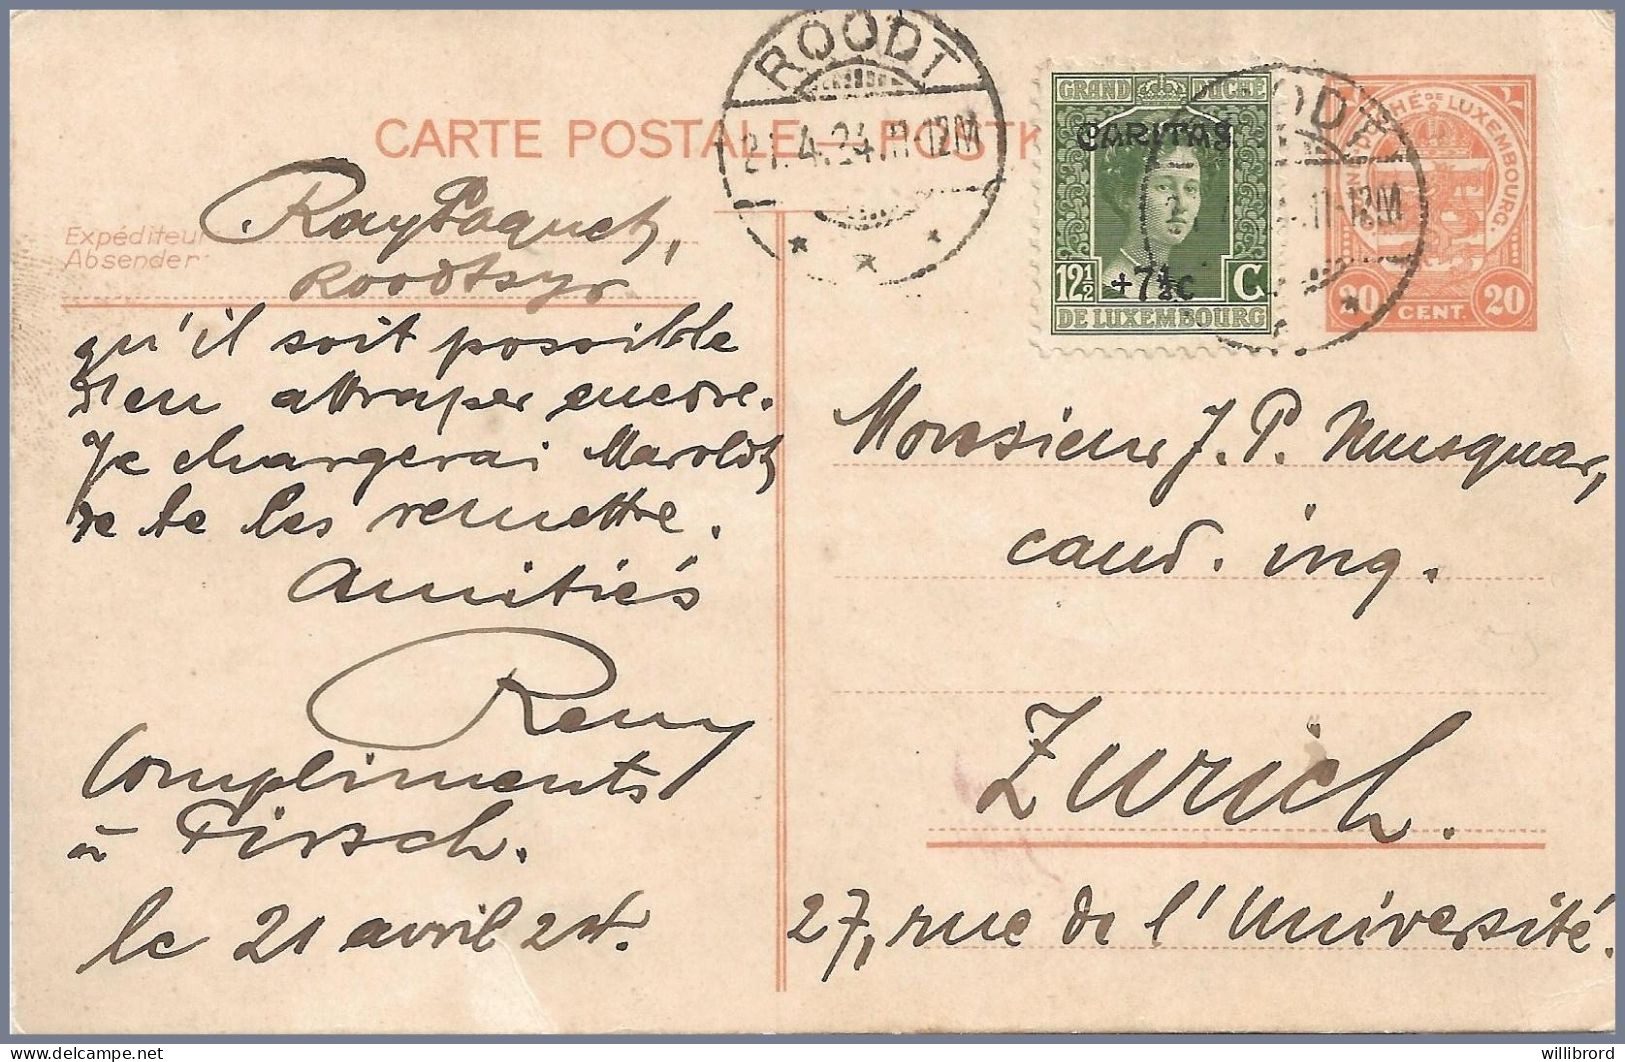 ROODT
21.4.24.11-12M
CARTE POSTALE — POSTK
GRAND DUCHÉ
CARITAS
12½ +7½c C
DE LUXEMBOURG
ROODT
11-12M
DUCHÉ DE LUXEMBOURG.
20 CENT. 20
Expéditeur
Absender:
Ray Paquet,
Roodtsyr
qu'il soit possible
d'en attraper encore.
Je chargerai Maroldt
de te les remettre.
Amitiés
Remy
Compliments
à Pirsch.
le 21 avril 24.
Monsieur J. P. Musquar,
cand. ing.
Zurich.
27, rue de l'Université.
willibrord